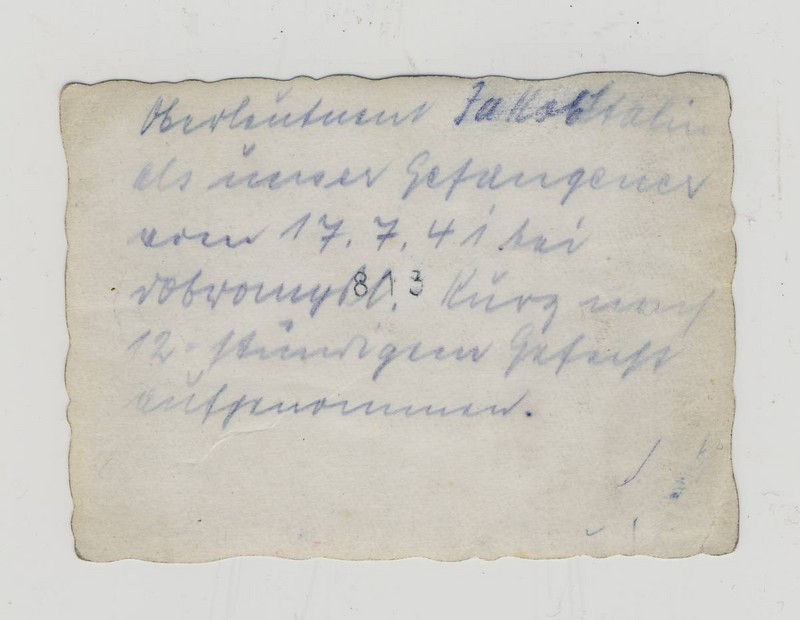 Oberleutnant Jakob Stalin
als unser Gefangener
vom 17. 7. 41 bei
Dobromysl. Kurz nach
12-stündigem Gefecht
aufgenommen.
813